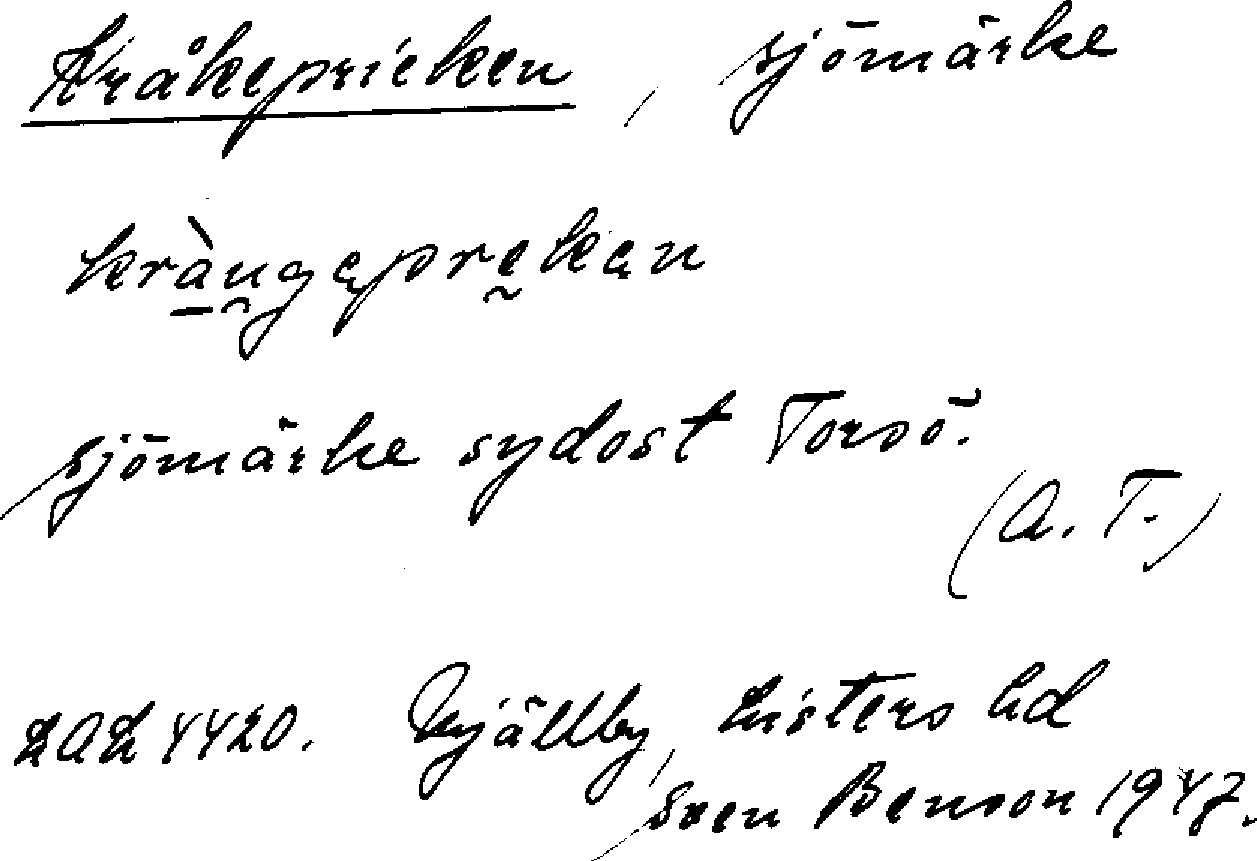 Kråkepricken, sjömärke
kràu̯gəprekən
sjömärke sydost Torsö.
(A. T.)
LAL 4420. Mjällby, Listers hd
Sven Benson 1947.